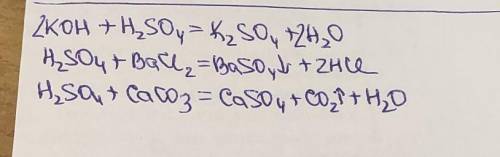 2KOH + H₂SO₄ = K₂SO₄ + 2H₂O
H₂SO₄ + BaCl₂ = BaSO₄↓ + 2HCl
H₂SO₄ + CaCO₃ = CaSO₄ + CO₂↑ + H₂O